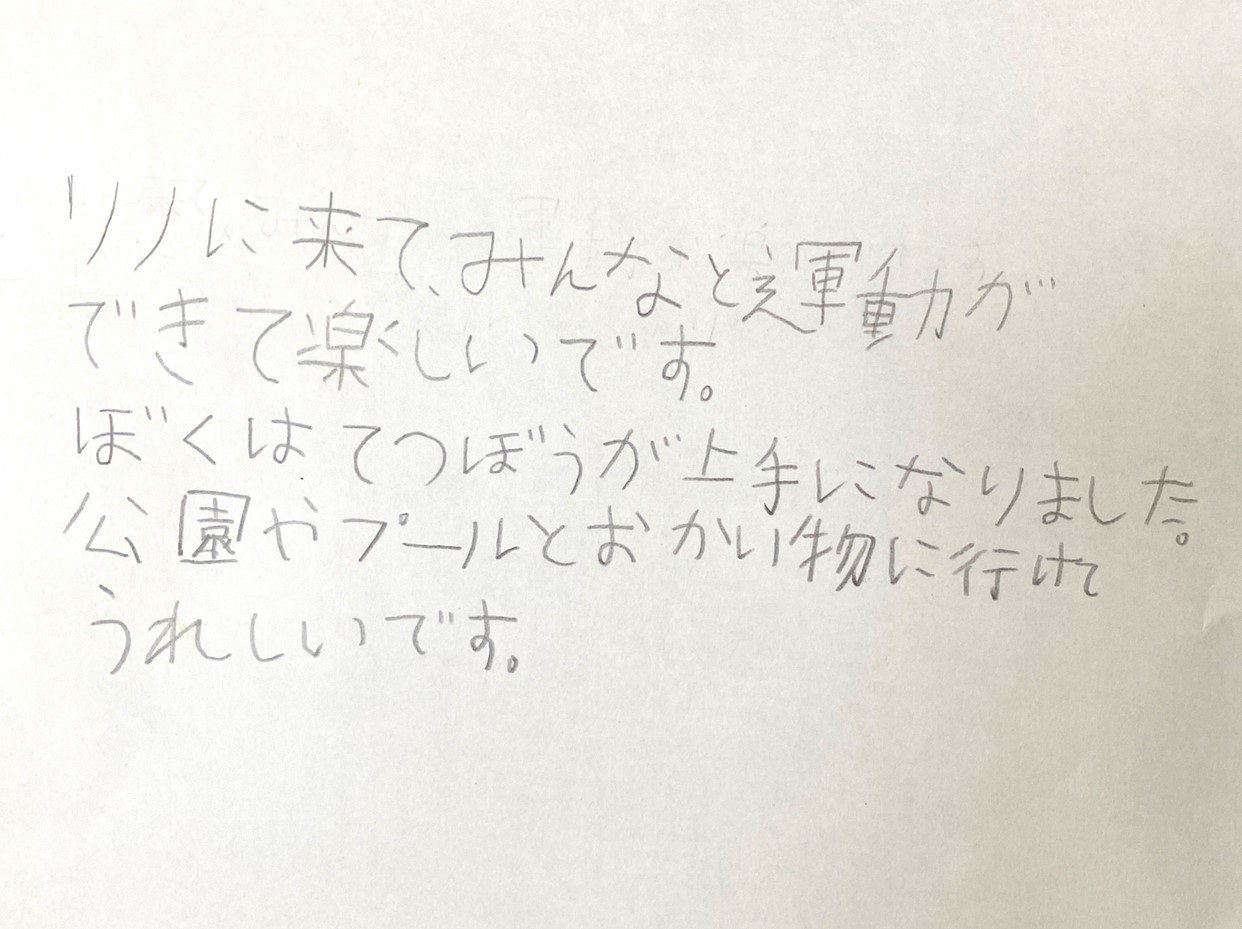 リノに来て、みんなと運動が
できて楽しいです。
ぼくはてつぼうが上手になりました。
公園やプールとおかい物に行けて
うれしいです。